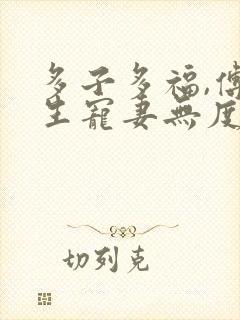 多子多福,傅
生寵妻無度
切列克